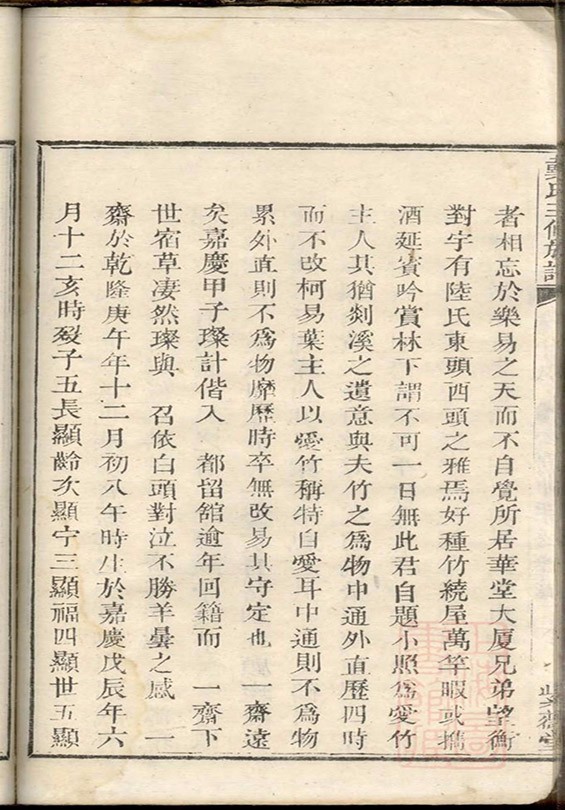 者相忘於樂易之天而不自覺所居華堂大厦兄弟望衡
對宇有陸氏東頭西頭之雅焉好種竹繞屋萬竿暇或攜
酒延賓吟賞林下謂不可一日無此君自題小照爲愛竹
主人其猶剡溪之遺意與夫竹之爲物中通外直歷四時
而不改柯易葉主人以愛竹稱特自愛耳中通則不爲物
累外直則不爲物靡歷時卒無改易其守定也 一齋遠
矣嘉慶甲子璨計偕入 都留舘逾年回籍而 一齋下
世宿草凄然璨與 召依白頭對泣不勝羊曇之感 一
齋於乾隆庚午年十二月初八午時生於嘉慶戊辰年六
月十二亥時歿子五長顯齡次顯宁三顯福四顯世五顯
氏三修族譜